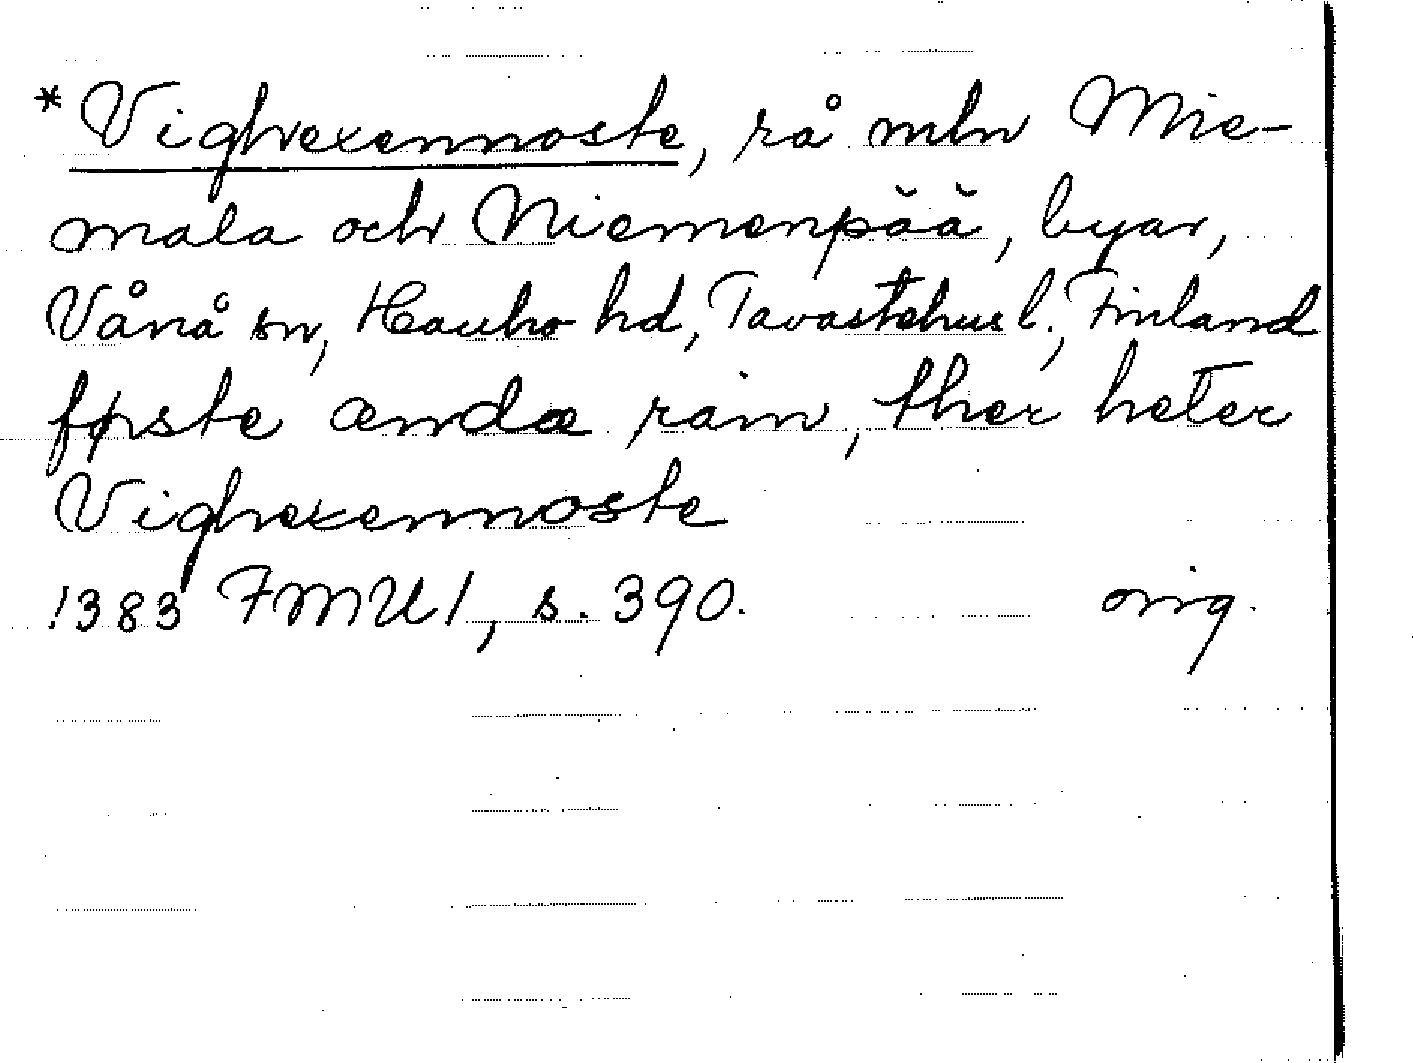 *Vighvexennoste, rå mln Mie-
mala och Niemenpää, byar,
Vånå sn, Hauho hd, Tavastehus l., Finland
første ænda räm, ther heter
Vighvexennoste
1383 FMU 1, s. 390. orig.